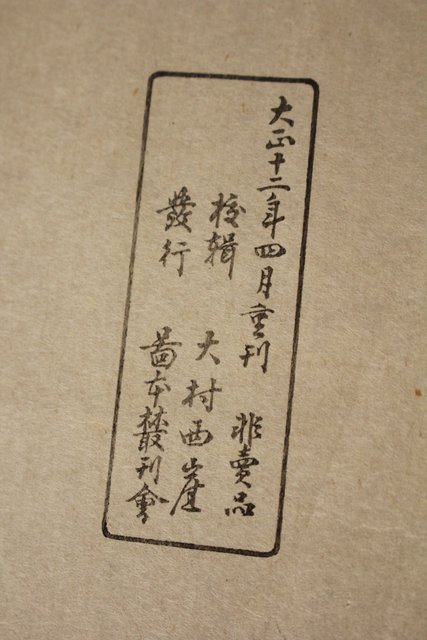 大正十二年四月重刊 非賣品
校輯 大村西崖
發行 啚本叢刊會